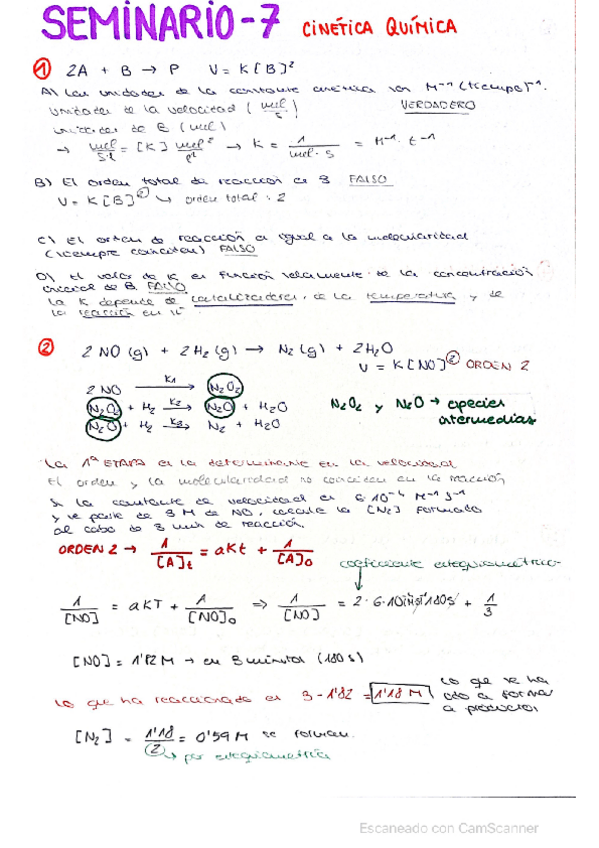 SEMINARIO-7 CINÉTICA QUÍMICA
① 2A + B → P V = K[B]²
A) Las unidades de la constante cinética son M⁻¹ (tiempo)⁻¹.
Unidades de la velocidad (mol/s) VERDADERO
unidades de B (mol)
→ mol/s·l = [K] mol²/l² → K = 1/mol·s = M⁻¹·t⁻¹
B) El orden total de reacción es 3 FALSO
V = K[B]² ↳ orden total: 2
C) El orden de reacción es igual a la molecularidad
(siempre coinciden) FALSO
D) El valor de K es función solamente de la concentración
inicial de B. FALSO
la K depende de catalizadores, de la temperatura y de
la reacción en sí.
② 2 NO (g) + 2H₂ (g) → N₂ (g) + 2H₂O
V = K[NO]² ORDEN 2
2 NO —K₁→ N₂O₂
N₂O₂ + H₂ —K₂→ N₂O + H₂O N₂O₂ y N₂O → especies
N₂O + H₂ —K₃→ N₂ + H₂O intermedias
La 1ª ETAPA es la determinante en la velocidad
El orden y la molecularidad no coinciden en la reacción
Si la constante de velocidad es 6·10⁻⁴ M⁻¹ s⁻¹
y se parte de 3 M de NO, calcule la [N₂] formado
al cabo de 3 min de reacción.
ORDEN 2 → 1/[A]t = aKt + 1/[A]₀
coeficiente estequiométrico
1/[NO] = aKT + 1/[NO]₀ ⇒ 1/[NO] = 2·6·10⁻⁴ 180s + 1/3
[NO] = 1'82 M → en 3 minutos (180 s)
lo que ha reaccionado es 3 - 1'82 = 1'18 M lo que se ha
ido a formar
a productos
[N₂] = 1'18/2 = 0'59 M se forman.
↳ por estequiometría
Escaneado con CamScanner